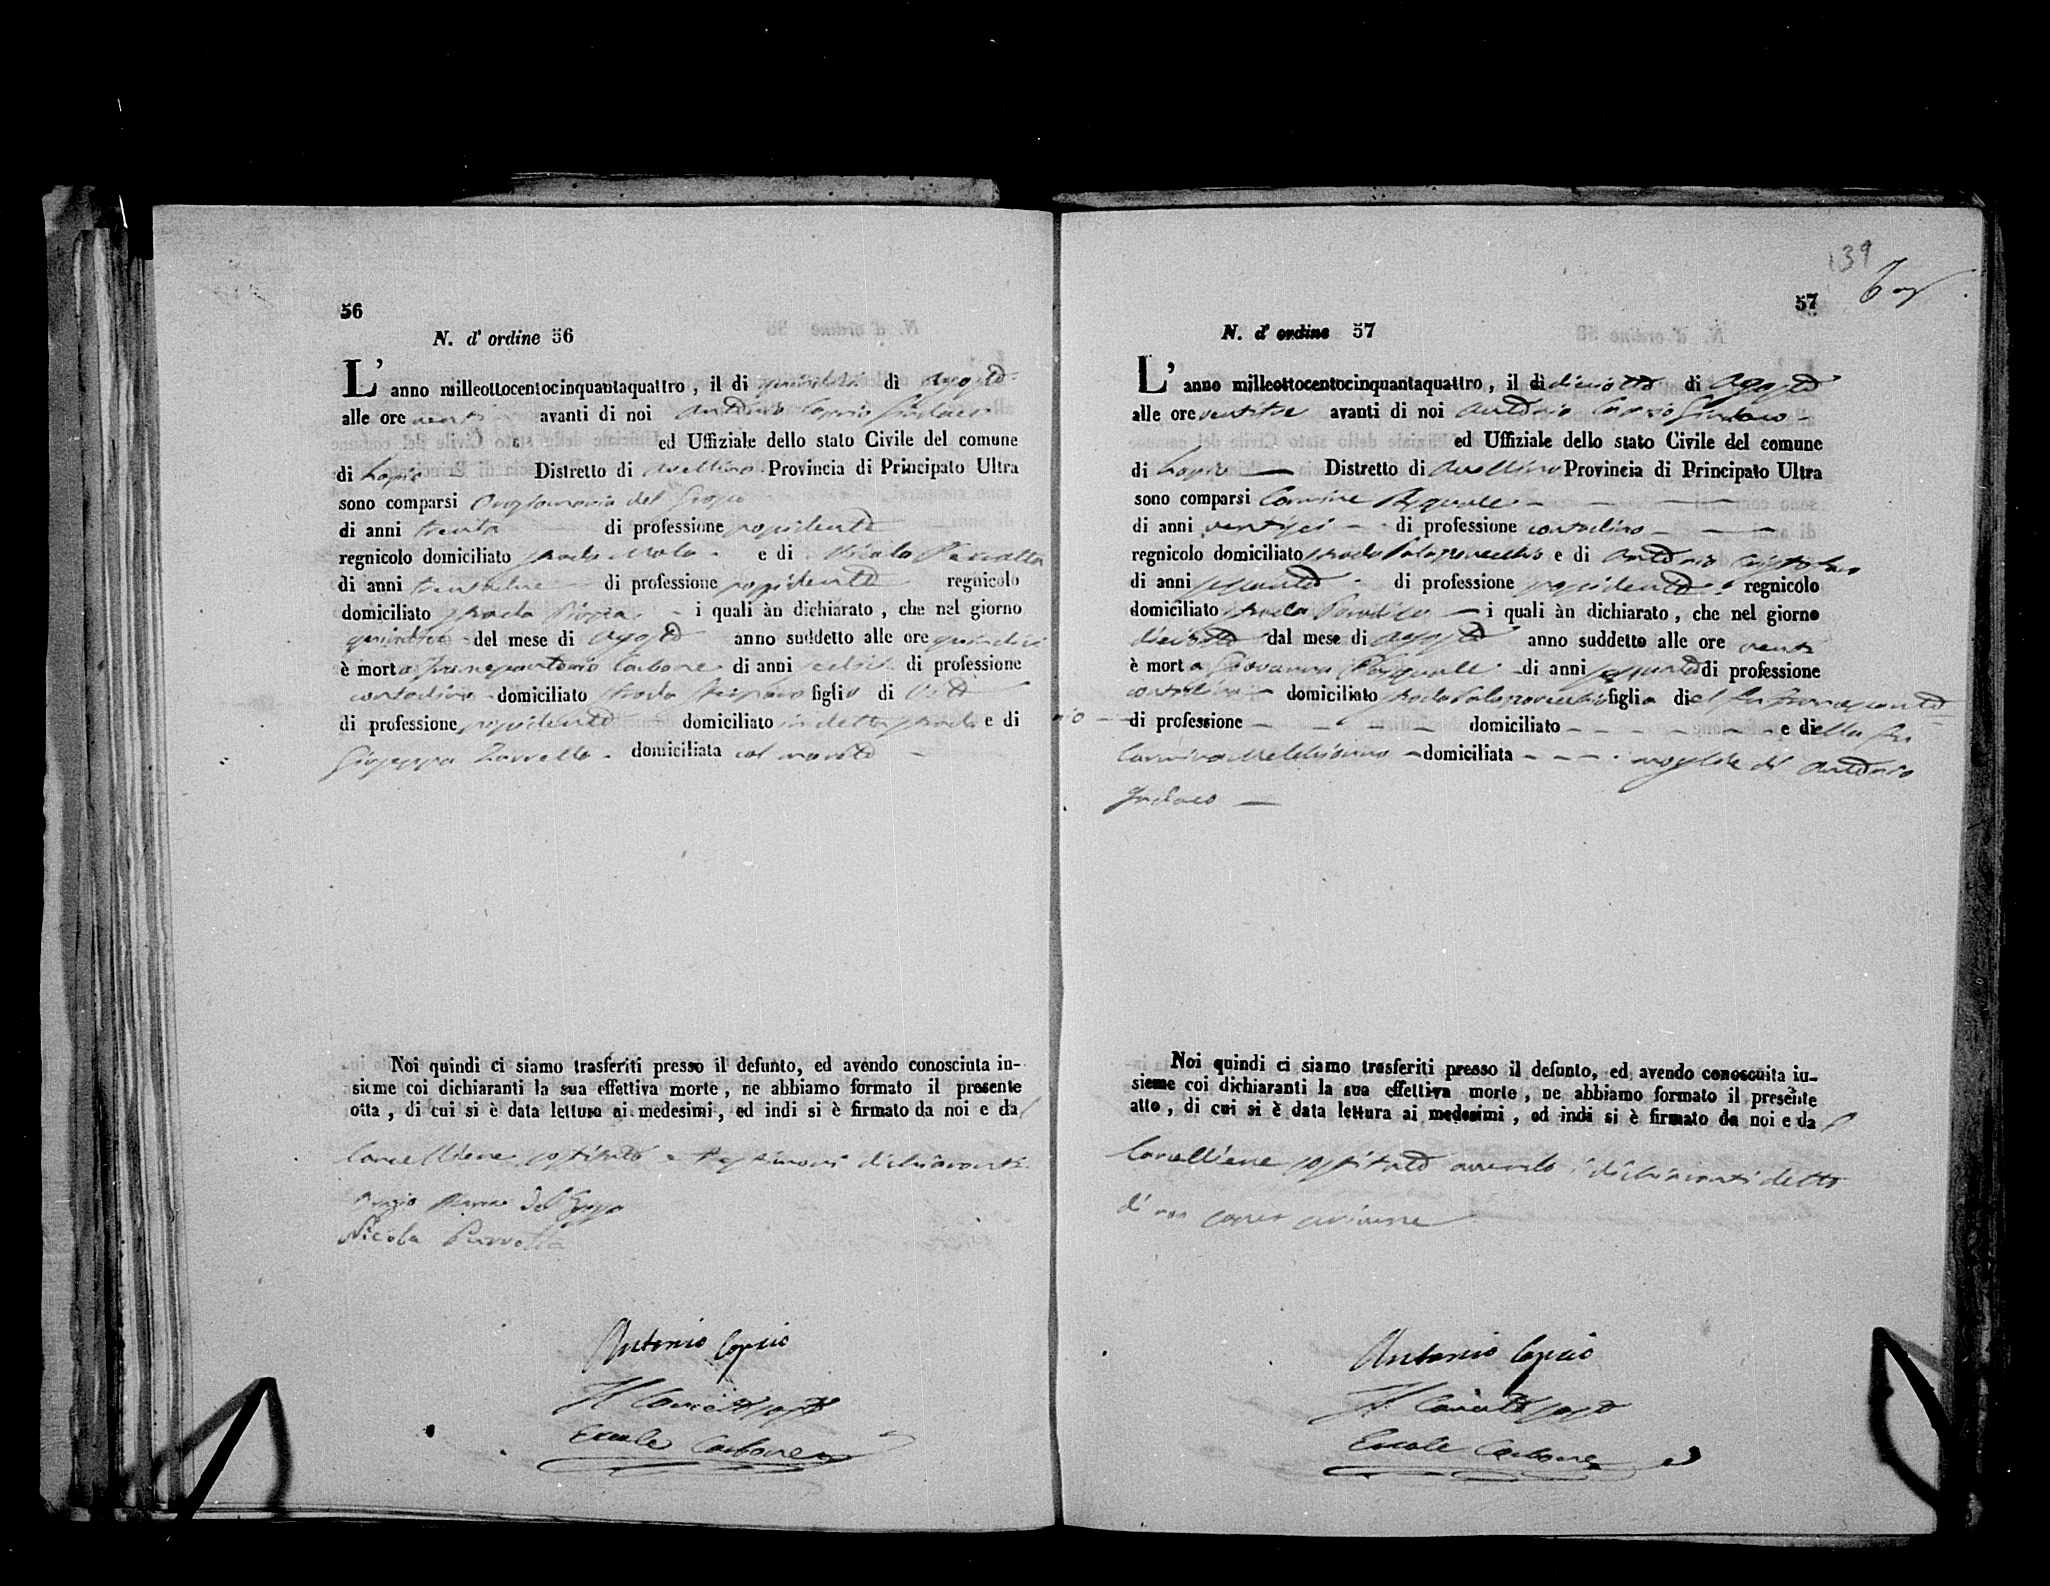 56
N. d' ordine 56
L' anno milleottocentocinquantaquattro, il di quindici di Agosto
alle ore venti avanti di noi Antonio Caprio Sindaco
ed Uffiziale dello stato Civile del comune
di Lapio Distretto di Avellino Provincia di Principato Ultra
sono comparsi del
di anni trenta di professione possidente
regnicolo domiciliato strada e di Nicola
di anni di professione possidente regnicolo
domiciliato strada i quali àn dichiarato, che nel giorno
quindici del mese di Agosto anno suddetto alle ore quindici
è morto Francescantonio Carbone di anni sedici di professione
contadino domiciliato strada figlio di Vito
di professione possidente domiciliato in detta strada e di
Giuseppa domiciliata col marito
Noi quindi ci siamo trasferiti presso il defunto, ed avendo conosciuta in-
sieme coi dichiaranti la sua effettiva morte, ne abbiamo formato il presente
otta, di cui si è data lettura ai medesimi, ed indi si è firmato da noi e dal
Cancelliere sostituto e testimoni dichiaranti
Nicola
Antonio Caprio
Il Cancell. sost.
Ercole Carbone
139
57
N. d' ordine 57
L' anno milleottocentocinquantaquattro, il di diciotto di Agosto
alle ore ventitre avanti di noi Antonio Caprio Sindaco
ed Uffiziale dello stato Civile del comune
di Lapio Distretto di Avellino Provincia di Principato Ultra
sono comparsi Carmine Pasquale
di anni ventisei di professione contadino
regnicolo domiciliato strada e di Antonio
di anni sessanta di professione possidente regnicolo
domiciliato strada i quali àn dichiarato, che nel giorno
diciotto dal mese di Agosto anno suddetto alle ore venti
è morta Giovanna Pasquale di anni sessanta di professione
contadina domiciliato strada figlia del fu Francescanto
nio di professione domiciliato e della fu
domiciliata moglie di Antonio
Noi quindi ci siamo trasferiti presso il defunto, ed avendo conoscuita in-
sieme coi dichiaranti la sua effettiva morte, ne abbiamo formato il presente
atto, di cui si è data lettura ai medesimi, ed indi si è firmato da noi e dal
Cancelliere sostituto avendo i dichiaranti detto
di non saper scrivere
Antonio Caprio
Il Cancell. sost.
Ercole Carbone